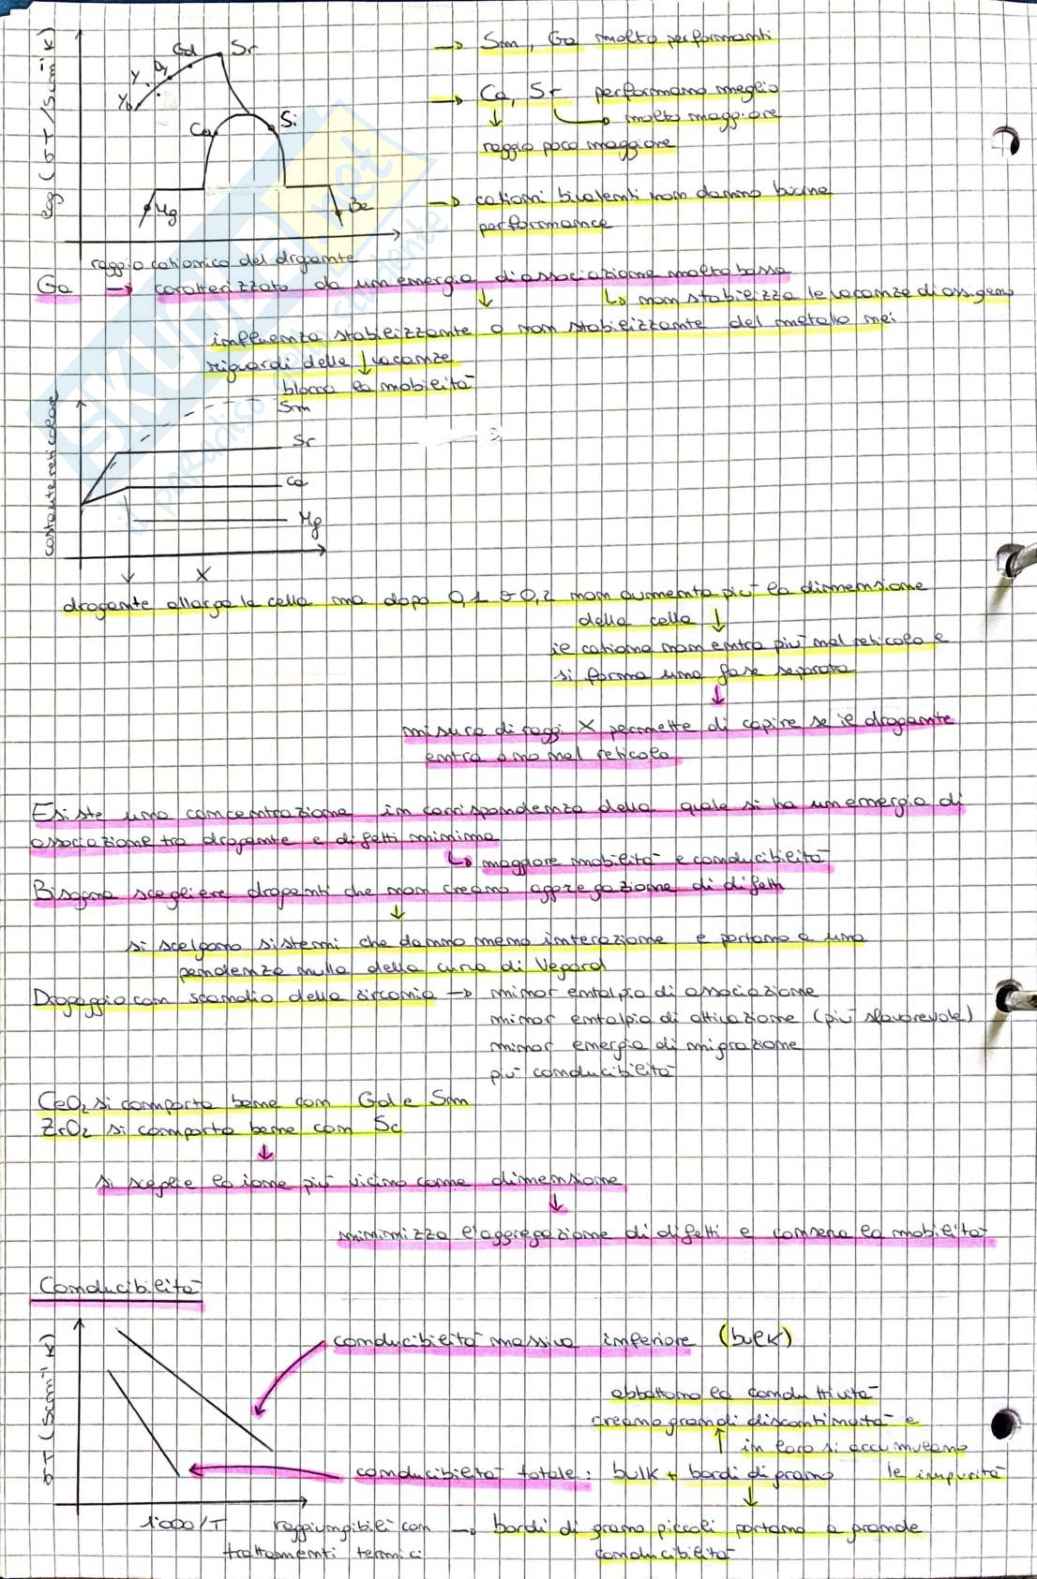 lg (σT/Scm⁻¹K)
Yb Y Dy Gd Sr
Ca Si
Mg Be
raggio cationico del drogante
→ Sm, Ga molto performanti
→ Ca, Sr performano meglio
↓ ↳ molto maggiore
raggio poco maggiore
→ cationi bivalenti non danno buone
performance
Ga → caratterizzato da un energia d'associazione molto bassa
↓ ↳ non stabilizza le vacanze di ossigeno
influenza stabilizzante o non stabilizzante del metallo nei
riguardi delle vacanze
↓
blocca la mobilità
costante reticolare
Sm
Sr
Ca
Mg
X
drogante allarga la cella ma dopo 0,1 o 0,2 non aumenta più la dimensione
della cella ↓
il catione non entra più nel reticolo e
si forma una fase separata
↓
misura di raggi X permette di capire se il drogante
entra o no nel reticolo
Esiste una concentrazione in corrispondenza della quale si ha un energia di
associazione tra drogante e difetti minima
↳ maggiore mobilità e conducibilità
Bisogna scegliere dropanti che non creano aggregazione di difetti
↓
si scelgono sistemi che danno meno interazione e portano a una
pendenza nulla della curva di Vegard
Dropaggio con scandio della zirconia → minor entalpia di associazione
minor entalpia di attivazione (più sfavorevole)
minor energia di migrazione
più conducibilità
CeO₂ si comporta bene con Gd e Sm
ZrO₂ si comporta bene con Sc
↓
si sceglie lo ione più vicino come dimensione
↓
minimizza l'aggregazione di difetti e conserva la mobilità
Conducibilità
σT (Scm⁻¹ K)
1000/T
conducibilità massiva inferiore (bulk)
abbattono la conduttività
creano grandi discontinuità e
↑ in loro si accumulano
conducibilità totale: bulk + bordi di grano le impurità
↓
raggiungibili con → bordi di grano piccoli portano a grande
trattamenti termici conducibilità
SKUOLA.net
il paradiso dello studente